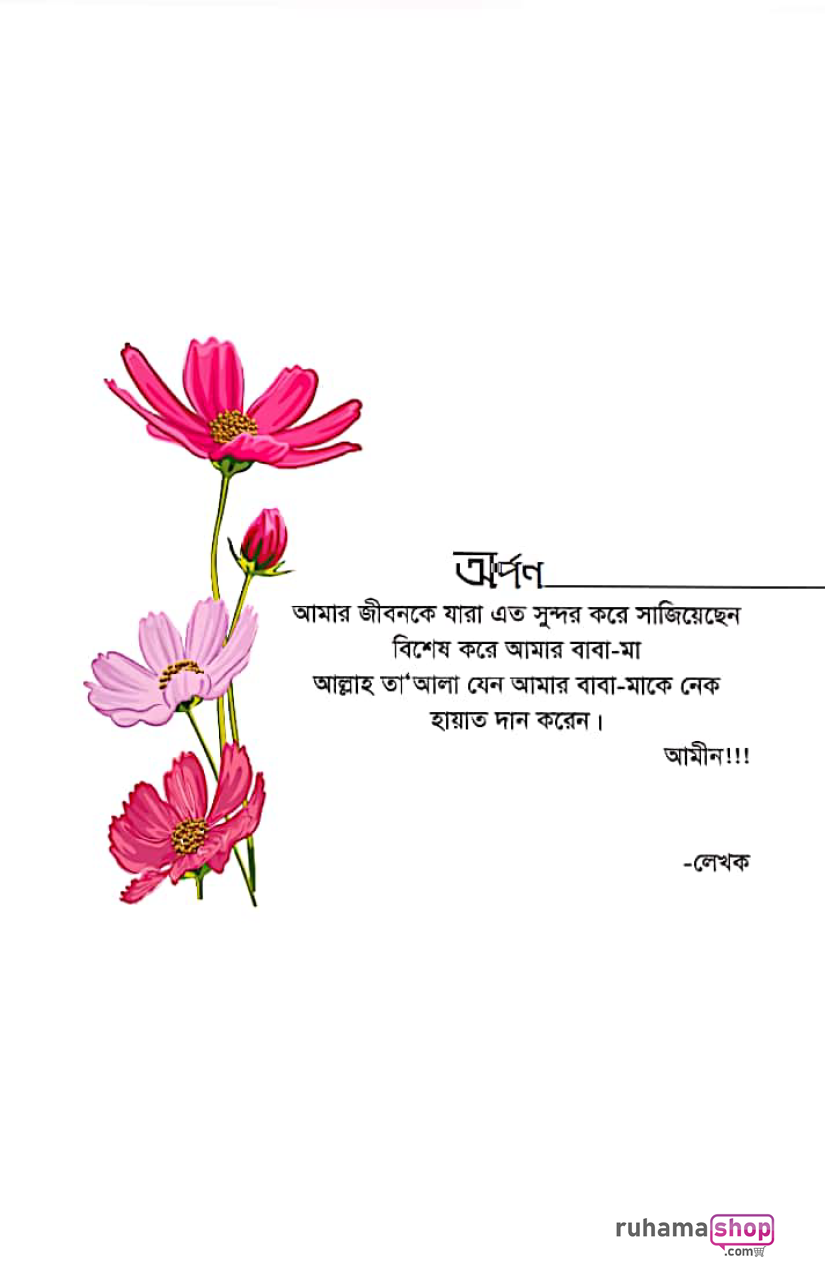 অর্পণ
আমার জীবনকে যারা এত সুন্দর করে সাজিয়েছেন
বিশেষ করে আমার বাবা-মা
আল্লাহ তা‘আলা যেন আমার বাবা-মাকে নেক
হায়াত দান করেন।
আমীন!!!
-লেখক
ruhamashop
.com